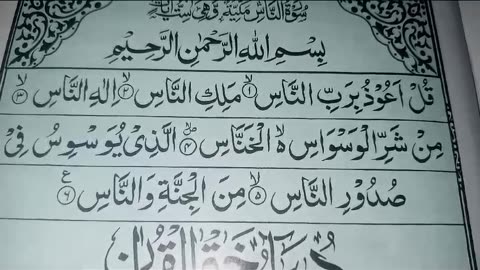 سُوْرَةُ النَّاسِ مَكِّيَّةٌ وَّهِيَ سِتُّ اٰيَاتٍ
بِسْمِ اللهِ الرَّحْمٰنِ الرَّحِيْمِ
قُلْ اَعُوْذُ بِرَبِّ النَّاسِ ۙ﴿۱﴾ مَلِكِ النَّاسِ ۙ﴿۲﴾ اِلٰهِ النَّاسِ ۙ﴿۳﴾
مِنْ شَرِّ الْوَسْوَاسِ ۙ۬ الْخَنَّاسِ ۪ۙ﴿۴﴾ الَّذِیْ یُوَسْوِسُ فِیْ
صُدُوْرِ النَّاسِ ۙ﴿۵﴾ مِنَ الْجِنَّةِ وَالنَّاسِ ﴿۶﴾ ع
دُعَاءُ خَتْمِ الْقُرْاٰنِ